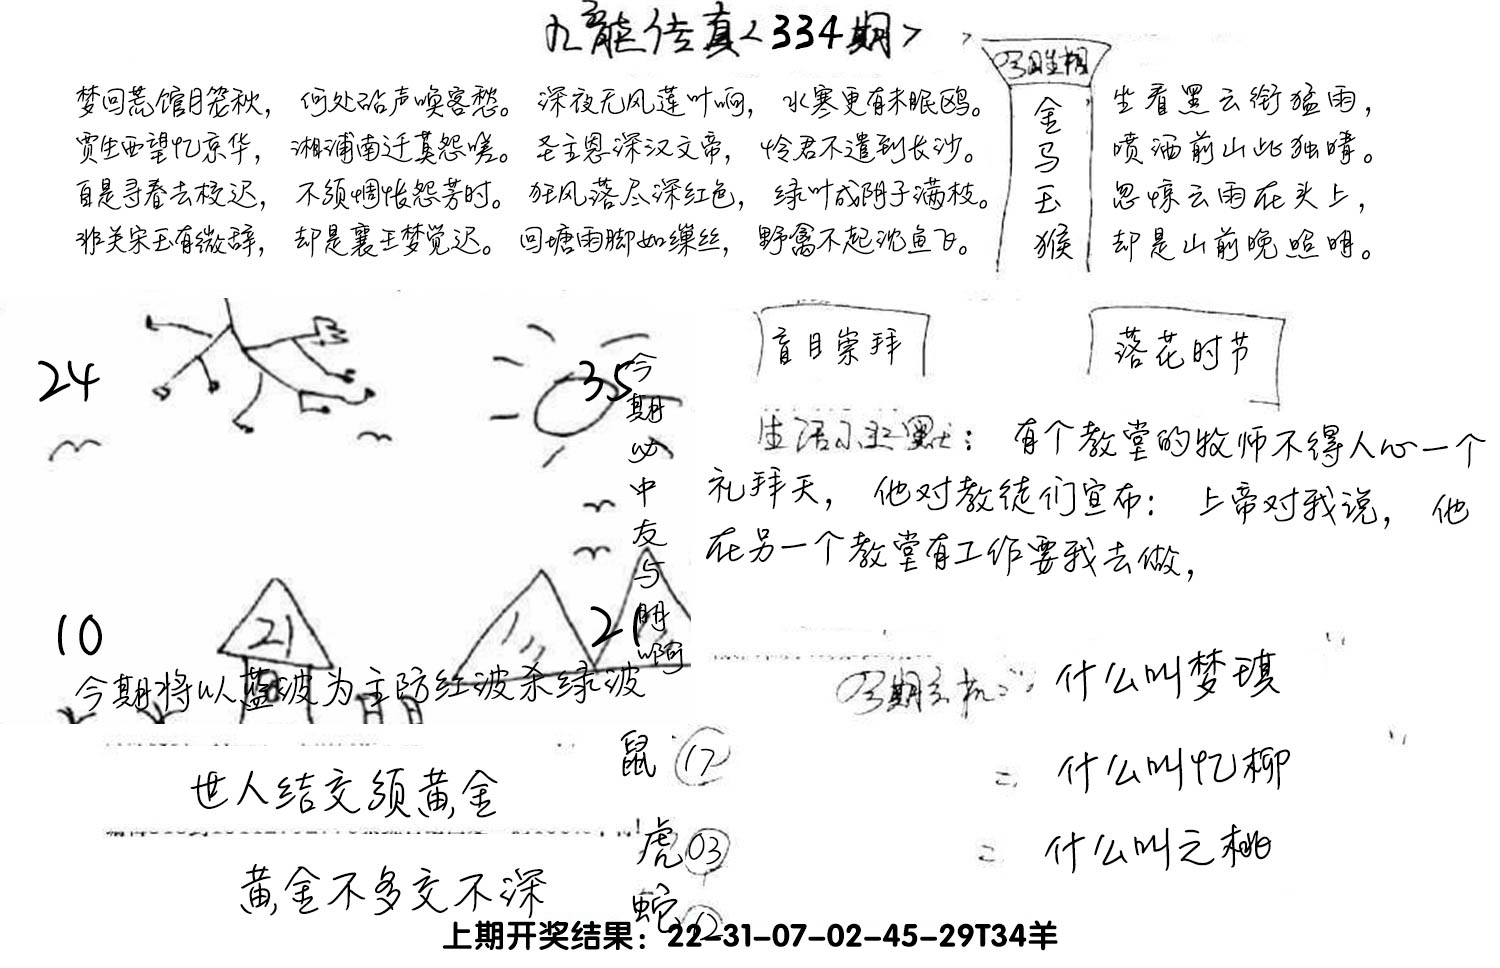 九龙传真<334期>
梦回荒馆月笼秋，何处砧声唤客愁。深夜无风莲叶响，水寒更有未眠鸥。
贾生西望忆京华，湘浦南迁莫怨嗟。圣主恩深汉文帝，怜君不遣到长沙。
自是寻春去校迟，不须惆怅怨芳时。狂风落尽深红色，绿叶成阴子满枝。
非关宋玉有微辞，却是襄王梦觉迟。回塘雨脚如缫丝，野禽不起沈鱼飞。
金
马
玉
猴
坐看黑云衔猛雨，
喷洒前山此独晴。
忽惊云雨在头上，
却是山前晚照明。
24
35
10
21
21
今期必中友与朋啊
今期将以蓝波为主防红波杀绿波
盲目崇拜
落花时节
生活小幽默：有个教堂的牧师不得人心一个
礼拜天，他对教徒们宣布：上帝对我说，他
在另一个教堂有工作要我去做，
什么叫梦琪
= 什么叫忆柳
= 什么叫之桃
世人结交须黄金
黄金不多交不深
鼠 17
虎 03
蛇
上期开奖结果：22-31-07-02-45-29T34羊